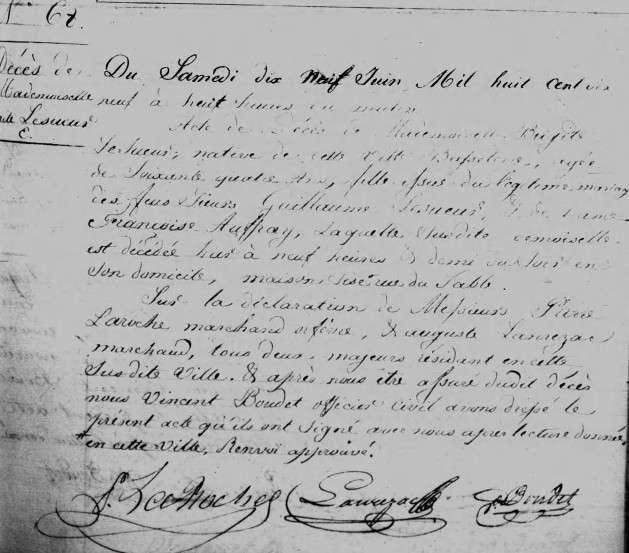 N.º 67.
Décès de
Mademoiselle
Lesueur
Du Samedi dix neuf Juin Mil huit cent dix
neuf à huit heures du matin
Acte de Décès de Mademoiselle Brigitte
Lesueur, native de cette Ville Basseterre, agée
de Soixante quatre Ans, fille issue du légitime mariage
des feus Sieurs Guillaume Lesueur, & de Dame
Françoise Auffray, Laquelle Susdite demoiselle
est décédée hier à neuf heures & demi du soir en
son domicile, maison sise rue du Sable
Sur la déclaration de Messieurs Pierre
Laroche marchand orfèvre, & auguste Lanrezac
marchand, tous deux majeurs résidant en cette
Susdite Ville. & après nous être assuré dudit décès
nous Vincent Boudet officier civil avons dressé le
présent acte qu'ils ont signé avec nous apres lecture donnée
en cette Ville, Renvoi approuvé.
Lanrezac Boudet